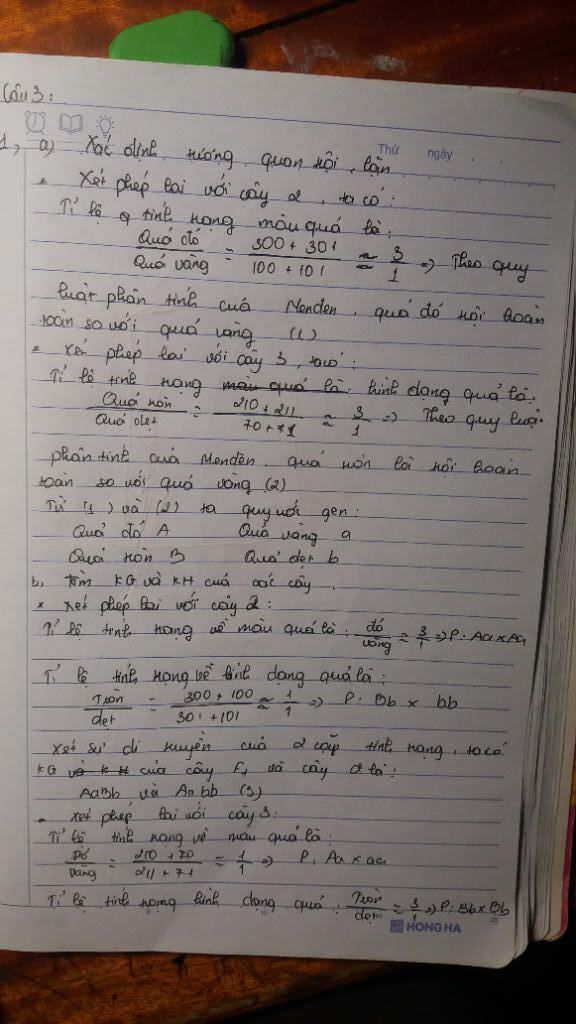 Câu 3:
Thứ ngày
1, a) Xác định tương quan trội, lặn
* Xét phép lai với cây 2, ta có:
Tỉ lệ tính trạng màu quả là:
Quả đỏ / Quả vàng = 300 + 301 / 100 + 101 ≈ 3/1 => Theo quy
luật phân tính của Menđen, quả đỏ trội hoàn
toàn so với quả vàng (1)
* Xét phép lai với cây 3, ta có:
Tỉ lệ tính trạng màu quả là hình dạng quả là.
Quả tròn / Quả dẹt = 210 + 211 / 70 + 71 ≈ 3/1 => Theo quy luật
phân tính của Menđen, quả tròn là trội hoàn
toàn so với quả vàng (2)
Từ (1) và (2) ta quy ước gen:
Quả đỏ A Quả vàng a
Quả tròn B Quả dẹt b
b, Tìm KG và KH của các cây.
* Xét phép lai với cây 2:
Tỉ lệ tính trạng về màu quả là: đỏ/vàng ≈ 3/1 => P: Aa x Aa
Tỉ lệ tính trạng về hình dạng quả là:
Tròn / dẹt = 300 + 100 / 301 + 101 ≈ 1/1 => P: Bb x bb
Xét sự di truyền của 2 cặp tính trạng, ta có
KG và KH của cây F1 và cây 2 là:
AaBb và Aabb (3)
- Xét phép lai với cây 3:
Tỉ lệ tính trạng về màu quả là:
Đỏ / Vàng = 210 + 70 / 211 + 71 ≈ 1/1 => P: Aa x aa
Tỉ lệ tính trạng hình dạng quả: Tròn/dẹt ≈ 3/1 => P: Bb x Bb
HONG HA